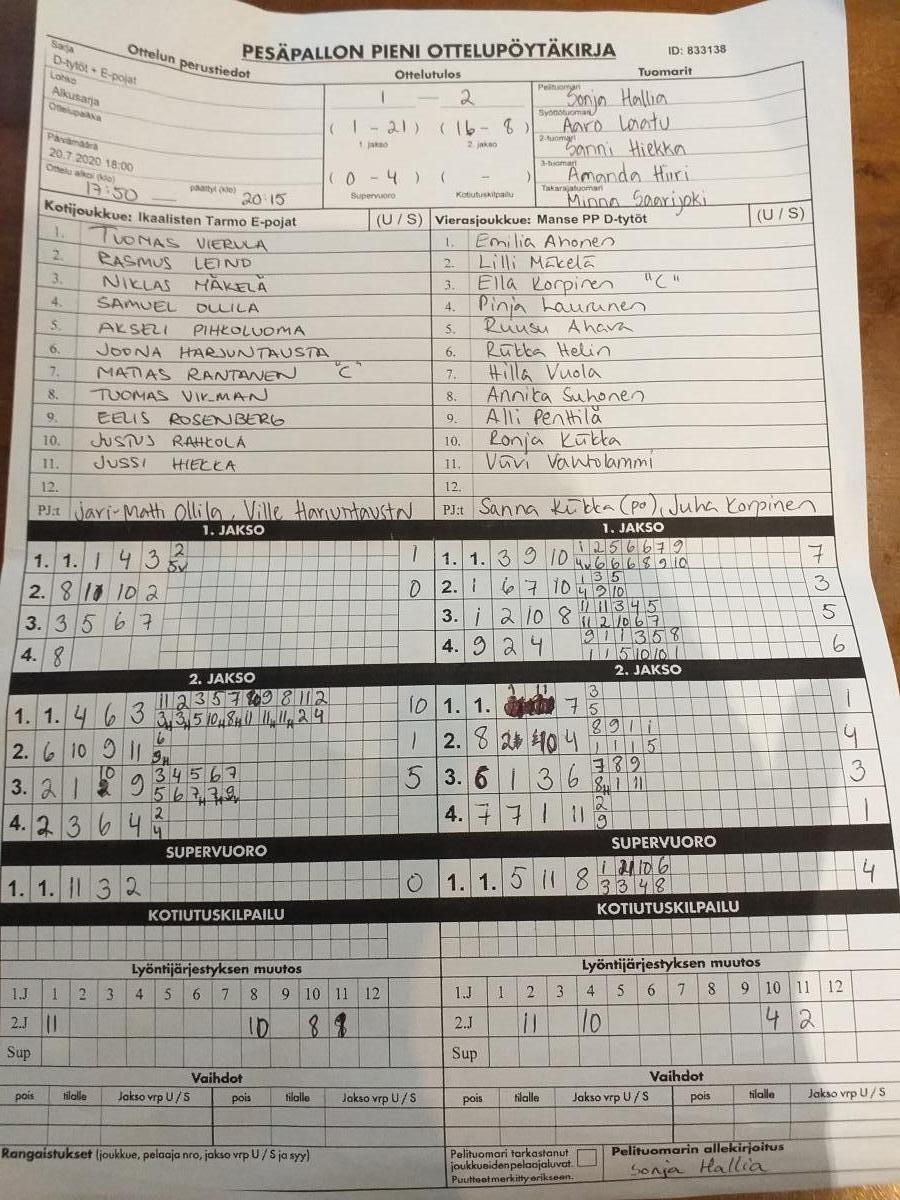 PESÄPALLON PIENI OTTELUPÖYTÄKIRJA ID: 833138
Sarja Ottelun perustiedot Ottelutulos Tuomarit
D-tytöt + E-pojat
Lohko
Alkusarja
Ottelupaikka
Päivämäärä
20.7.2020 18:00
Ottelu alkoi (klo) päättyi (klo)
17:50 20:15
1 — 2
( 1 - 21 ) ( 16 - 8 )
1. jakso 2. jakso
( 0 - 4 ) ( - )
Supervuoro Kotiutuskilpailu
Pelituomari
Sonja Hallia
Syöttötuomari
Aaro Laatu
2-tuomari
Sanni Hiekka
3-tuomari
Amanda Hiiri
Takarajatuomari
Minna Saarijoki
Kotijoukkue: Ikaalisten Tarmo E-pojat (U / S) Vierasjoukkue: Manse PP D-tytöt (U / S)
1. TUOMAS VIERULA 1. Emilia Ahonen
2. RASMUS LEINO 2. Lilli Mäkelä
3. NIKLAS MÄKELÄ 3. Ella Korpinen "C"
4. SAMUEL OLLILA 4. Pinja Laurunen
5. AKSELI PIHKOLUOMA 5. Ruusu Ahava
6. JOONA HARJUNTAUSTA 6. Riikka Helin
7. MATIAS RANTANEN "C" 7. Hilla Vuola
8. TUOMAS VIKMAN 8. Annika Suhonen
9. EELIS ROSENBERG 9. Alli Penttilä
10. JUSTUS RAHKOLA 10. Ronja Kiikka
11. JUSSI HIEKKA 11. Viivi Vahtolammi
12. 12.
PJ:t Jari-Matti Ollila, Ville Harjuntausta PJ:t Sanna Kiikka (po), Juha Korpinen
1. JAKSO 1. JAKSO
1. 1. 1 4 3 2 1 1. 1. 3 9 10 1 2 5 6 6 7 9 7
5v 4v 6 6 6 8 9 10
2. 8 10 2 0 2. 1 6 7 10 1 3 5 3
4 9 10
3. 3 5 6 7 3. 1 2 10 8 11 11 3 4 5 5
11 2 10 6 7
4. 8 4. 9 2 4 9 1 1 3 5 8 6
1 1 5 10 10 1
2. JAKSO 2. JAKSO
1. 1. 4 6 3 11 2 3 5 7 10 9 8 11 2 10 1. 1. 7 3 1
5
2. 6 10 9 11 6 1 2. 8 4 8 9 1 1 4
9H 1 1 1 5
3. 2 1 9 3 4 5 6 7 5 3. 6 1 3 6 7 8 9 3
8H 1 11
4. 2 3 6 4 2 4. 7 7 1 11 2 1
4 9
SUPERVUORO SUPERVUORO
1. 1. 11 3 2 0 1. 1. 5 11 8 1 10 6 4
3 3 4 8
KOTIUTUSKILPAILU KOTIUTUSKILPAILU
Lyöntijärjestyksen muutos Lyöntijärjestyksen muutos
1.J 1 2 3 4 5 6 7 8 9 10 11 12 1.J 1 2 3 4 5 6 7 8 9 10 11 12
2.J 11 10 8 1 2.J 11 10 4 2
Sup Sup
Vaihdot Vaihdot
pois tilalle Jakso vrp U / S pois tilalle Jakso vrp U / S pois tilalle Jakso vrp U / S pois tilalle Jakso vrp U / S
Rangaistukset (joukkue, pelaaja nro, jakso vrp U / S ja syy) Pelituomari tarkastanut Pelituomarin allekirjoitus
joukkueiden pelaajaluvat. Sonja Hallia
Puutteet merkitty erikseen.